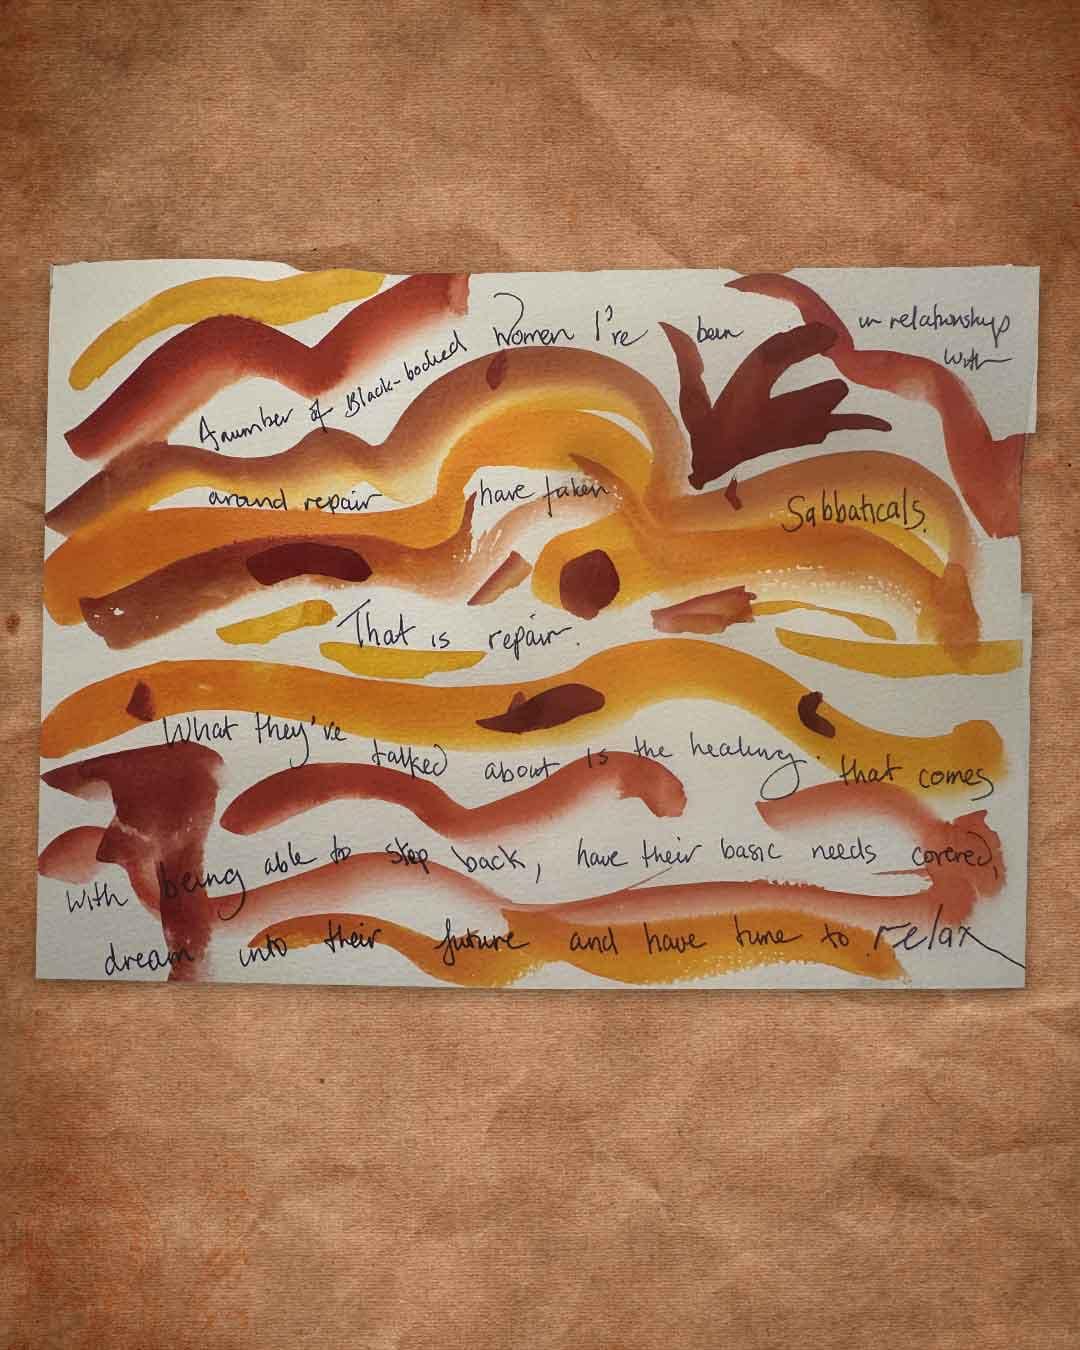 A number of Black-bodied Women I've been in relationship
with
around repair have taken Sabbaticals.
That is repair.
What they've talked about is the healing. that comes
with being able to step back, have their basic needs covered,
dream into their future and have time to relax